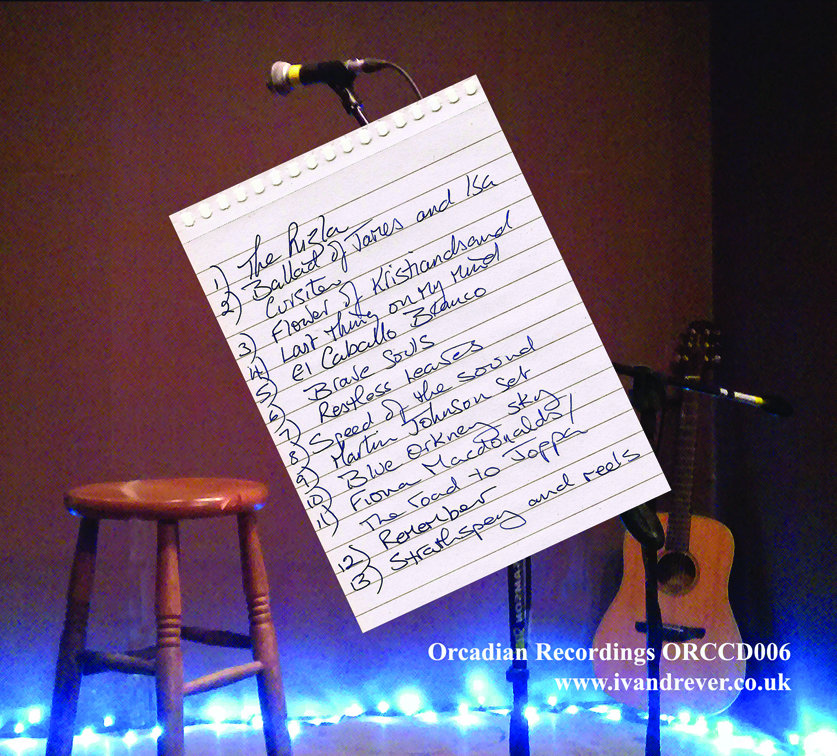 1) The Rizla
2) Ballad of James and Isa
Cursiter
3) Flower of Kristiandsand
4) Last Thing on My Mind
5) El Caballo Blanco
6) Brave Souls
7) Restless Leaves
8) Speed of the sound
9) Martin Johnson set
10) Blue Orkney sky
11) Fiona Macdonalds/
The road to Joppa
12) Remember
13) Strathspey and reels
Orcadian Recordings ORCCD006
www.ivandrever.co.uk